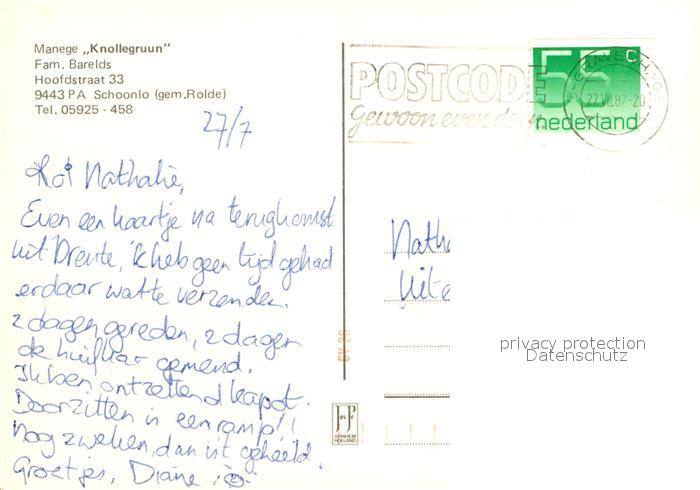 Manege „Knollegruun”
Fam. Barelds
Hoofdstraat 33
9443 PA Schoonlo (gem. Rolde)
Tel. 05925 - 458
27/7
Hoi Nathalie,
Even een kaartje na terugkomst
uit Drente, 'k heb geen tijd gehad
er daar wat te verzenden.
2 dagen gereden, 2 dagen
de huifkar gemend.
Ik ben ontzettend kapot.
Doorzitten is een ramp!!
Nog 2 weken, dan is 't geheeld.
Groetjes, Diane
POSTCODE
Gewoon even doen
55 c
nederland
'S-GRAVENHAGE
27.VII.87-20
Nath
Uite
privacy protection
Datenschutz
GV 26
JosPé
ARNHEM
HOLLAND